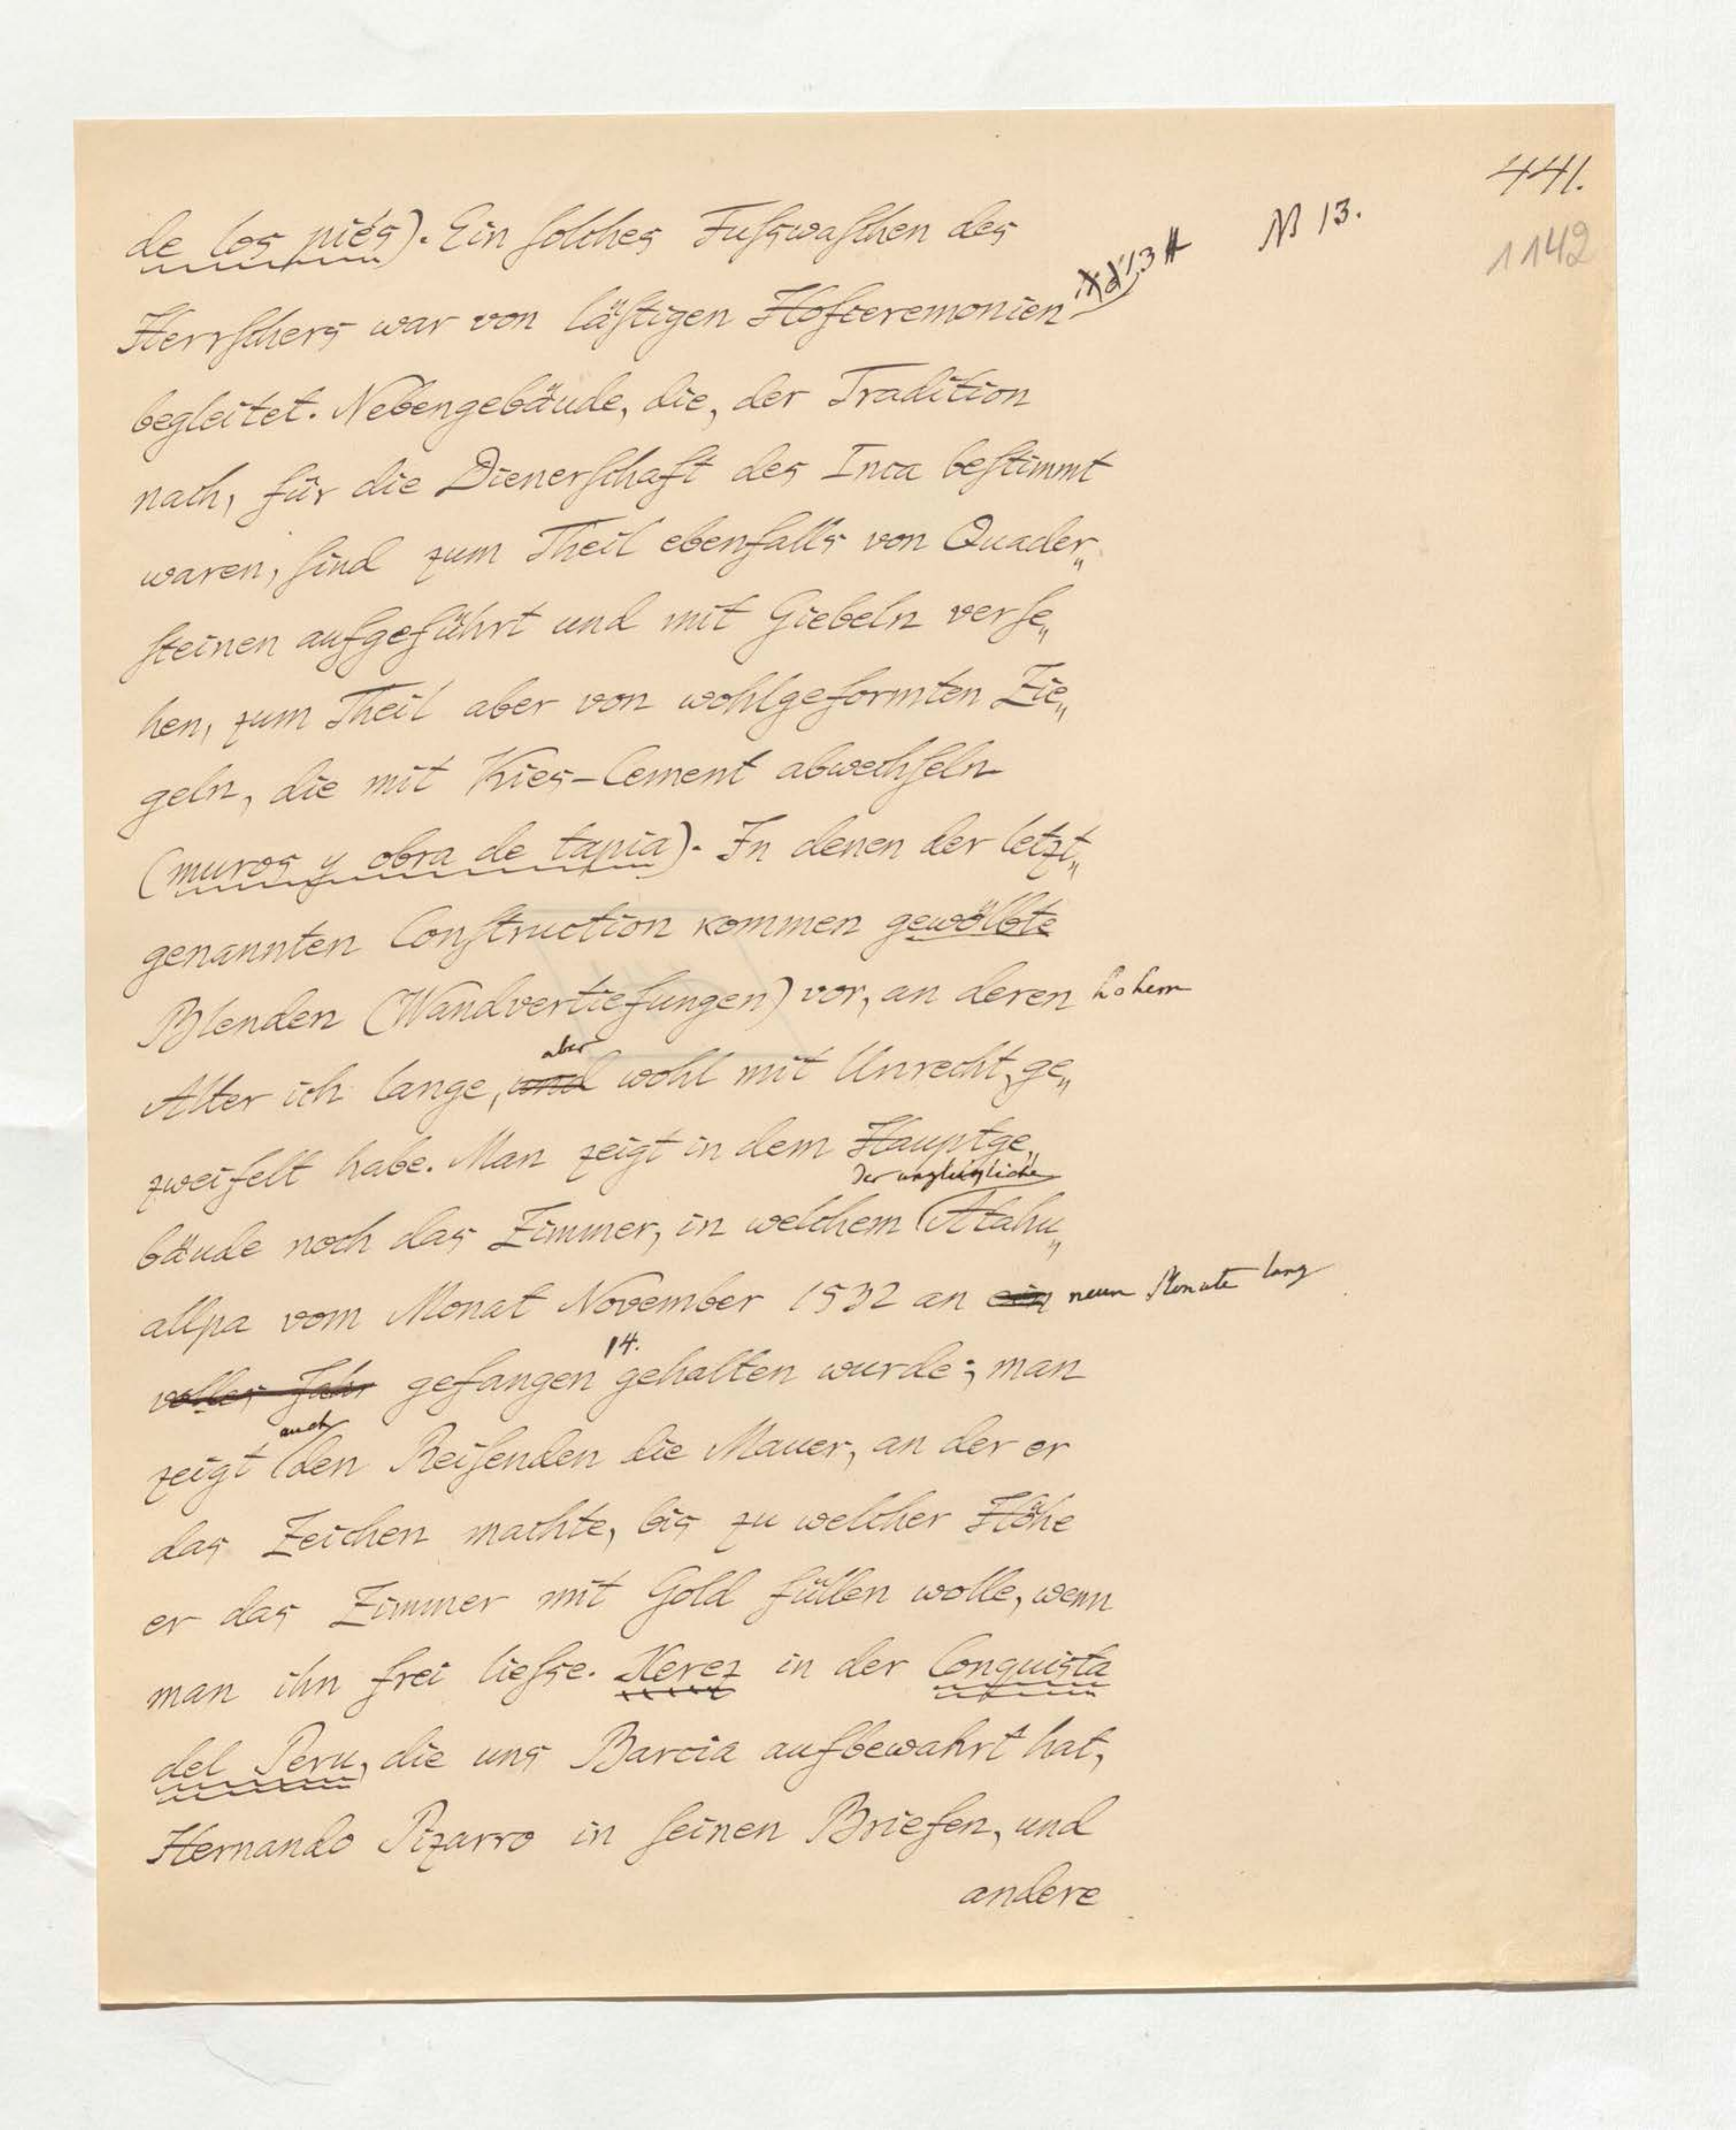 441.
N 13.
1142
de los piés). Ein solches Fußwaschen des
Herrschers war von lästigen Hofceremonien
begleitet. Nebengebäude, die, der Tradition
nach, für die Dienerschaft des Inca bestimmt
waren, sind zum Theil ebenfalls von Quader„
steinen aufgeführt und mit Giebeln verse„
hen, zum Theil aber von wohlgeformten Zie„
geln, die mit Kies-Cement abwechseln
(muros y obra de tapia). In denen der letzt„
genannten Construction kommen gewölbte
Blenden (Wandvertiefungen) vor, an deren hohem
aber
Alter ich lange, und wohl mit Unrecht, ge„
zweifelt habe. Man zeigt in dem Hauptge„
der unglückliche
bäude noch das Zimmer, in welchem Atahu„
allpa vom Monat November 1532 an ein neun Monate lang
14.
volles Jahr gefangen gehalten wurde; man
auch
zeigt den Reisenden die Mauer, an der er
das Zeichen machte, bis zu welcher Höhe
er das Zimmer mit Gold füllen wolle, wenn
man ihn frei ließe. Xerez in der Conquista
del Peru, die uns Barcia aufbewahrt hat,
Hernando Pizarro in seinen Briefen, und
andere